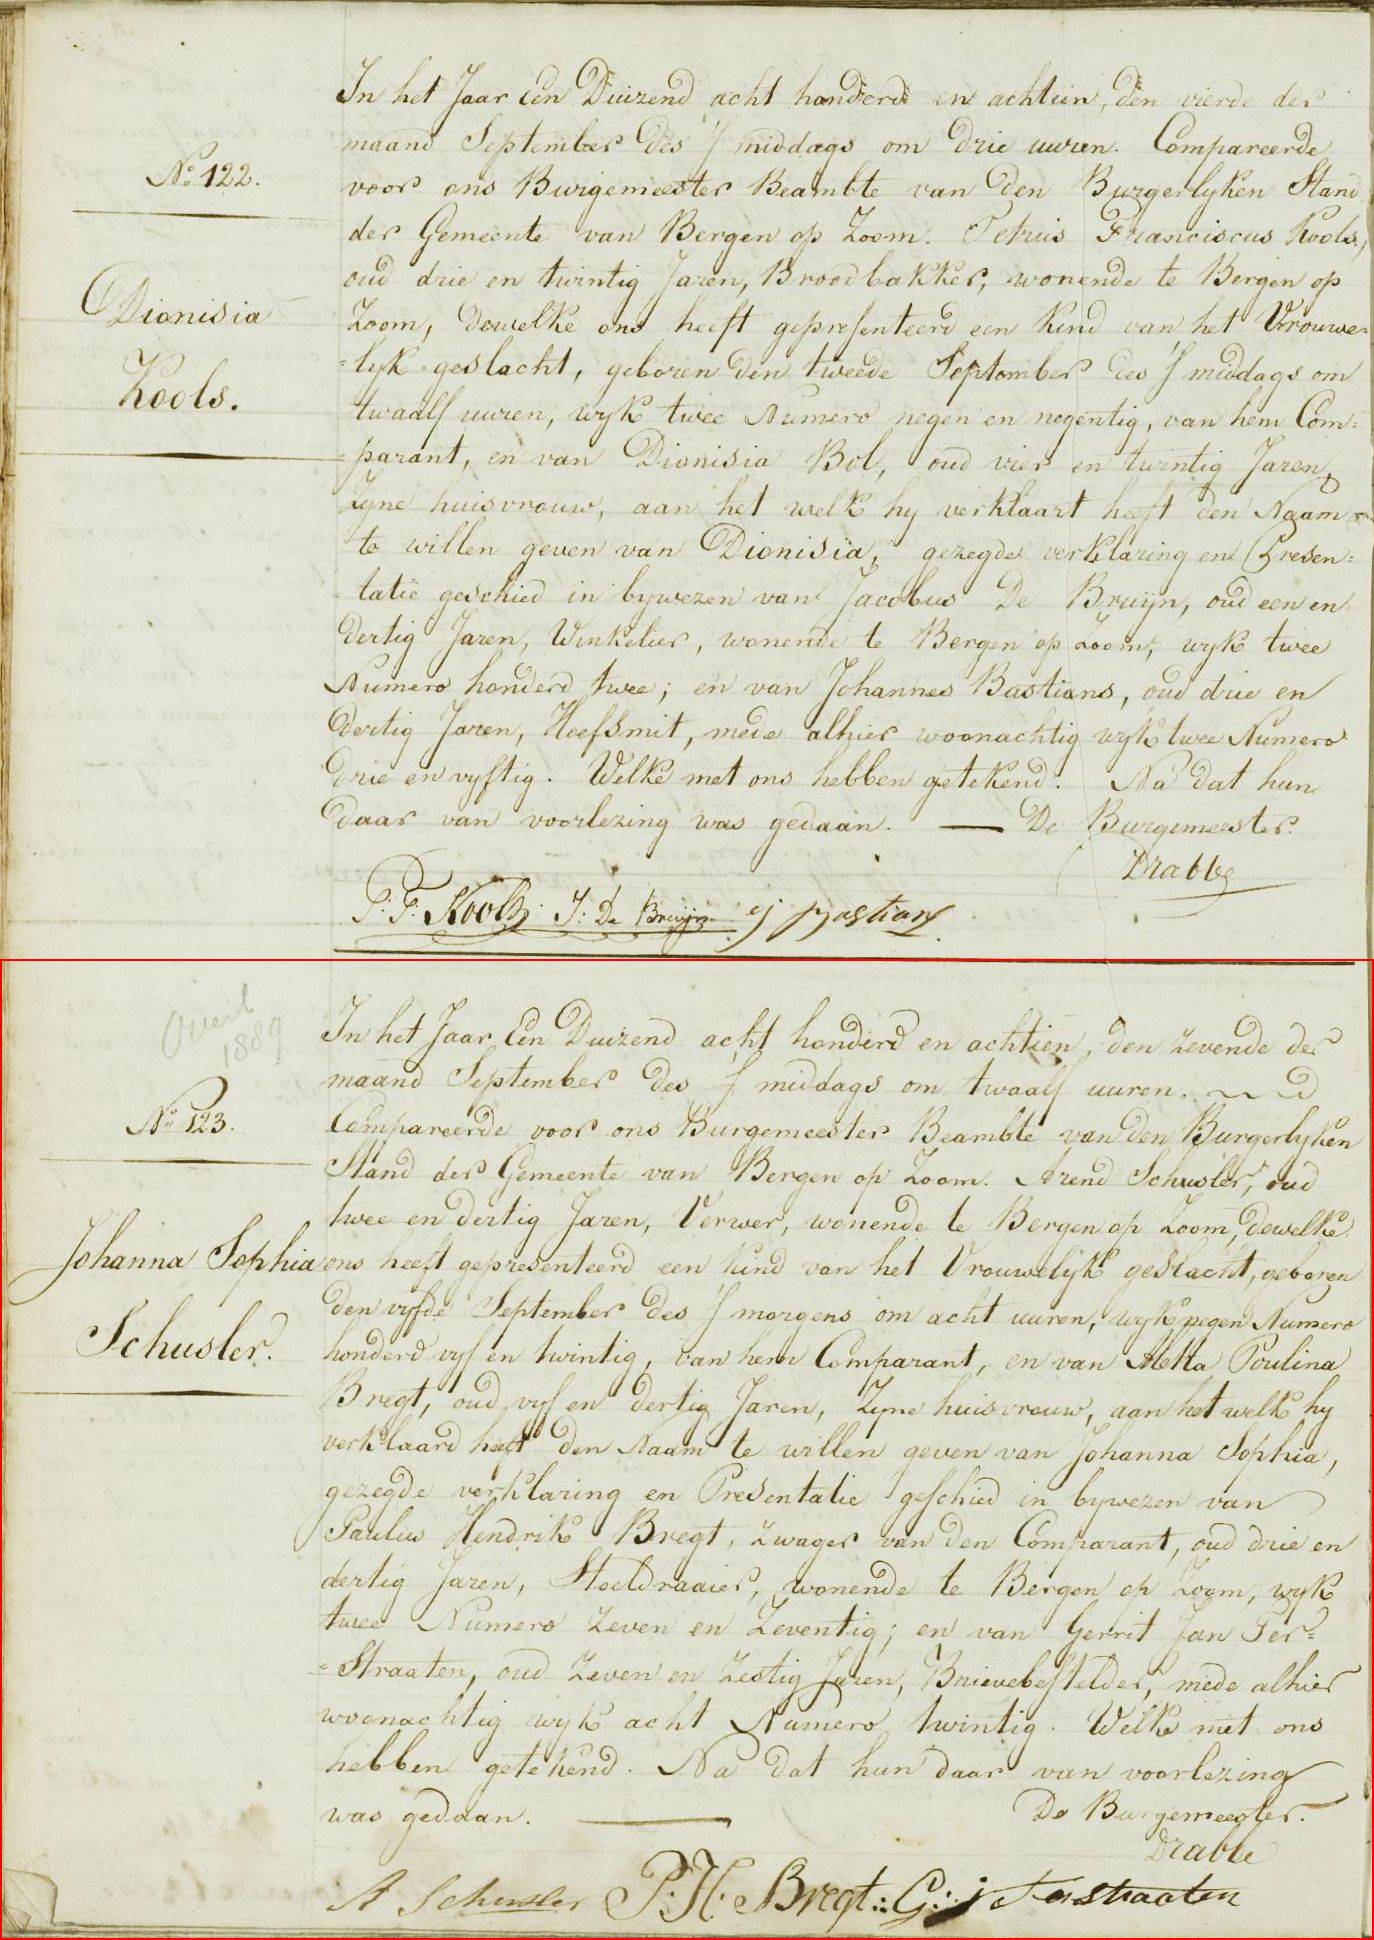 No 122.
Dionisia
Kools.
In het Jaar Een Duizend acht honderd en achtien, den vierde der
maand September des S middags om drie uuren. Compareerde
voor ons Burgemeester Beambte van den Burgerlyken Stand
der Gemeente van Bergen op Zoom. Petrus Franciscus Kools,
oud drie en twintig Jaren, Broodbakker, wonende te Bergen op
Zoom, dewelke ons heeft gepresenteerd een kind van het Vrouwe=
=lyk geslacht, geboren den tweede September des S middags om
twaalf uuren, wyk twee Numero negen en negentig, van hem Com=
=parant, en van Dionisia Bol, oud vier en twintig Jaren,
Zyne huisvrouw, aan het welk hy verklaart heeft den Naam
te willen geven van Dionisia, gezegde verklaring en Presen=
=tatie geschied in bywezen van Jacobus De Bruijn, oud een en
dertig Jaren, Winkelier, wonende te Bergen op Zoom, wyk twee
Numero honderd twee; en van Johannes Bastians, oud drie en
dertig Jaren, Hoefsmit, mede alhier woonachtig wyk twee Numero
drie en vyftig. Welke met ons hebben getekend. Na dat hun
daar van voorlezing was gedaan. — De Burgemeester.
Drabbe
P: F: Kools. J: De Bruijn j bastians
Overl
1889
No 123.
Johanna Sophia
Schusler.
In het Jaar Een Duizend acht honderd en achtien, den zevende der
maand September des S middags om twaalf uuren.
Compareerde voor ons Burgemeester Beambte van den Burgerlyken
Stand der Gemeente van Bergen op Zoom. Arend Schusler, oud
twee en dertig Jaren, Verwer, wonende te Bergen op Zoom, dewelke
ons heeft gepresenteerd een kind van het Vrouwelijk geslacht, geboren
den vyfde September des S morgens om acht uuren, wyk negen Numero
honderd vyf en twintig, van hem Comparant, en van Aletta Poulina
Bregt, oud vyf en dertig Jaren, Zyne huisvrouw, aan het welk hy
verklaard heeft den Naam te willen geven van Johanna Sophia,
gezegde verklaring en Presentatie geschied in bywezen van
Paulus Hendrik Bregt, zwager van den Comparant, oud drie en
dertig Jaren, Stoeldraaier, wonende te Bergen op Zoom, wyk
twee Numero zeven en Zeventig; en van Gerrit Jan Ter=
=Straaten, oud Zeven en Zestig Jaren, Brievebesteller, mede alhier
woonachtig wyk acht Numero twintig. Welke met ons
hebben getekend. Na dat hun daar van voorlezing
was gedaan. — De Burgemeester.
Drabbe
A Schusler P: H: Bregt.:. G: j terstraaten